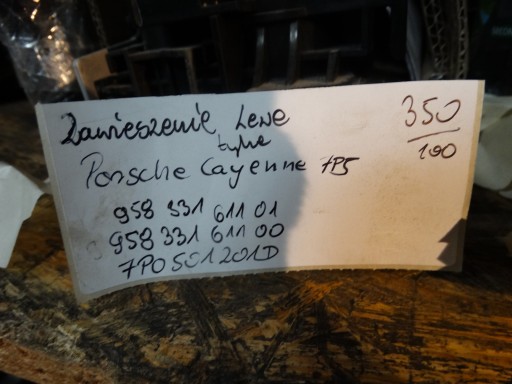 Zawieszenie Lewe
tylne
350
100
Porsche Cayenne 7P5
958 331 611 01
958 331 611 00
7P0501201D